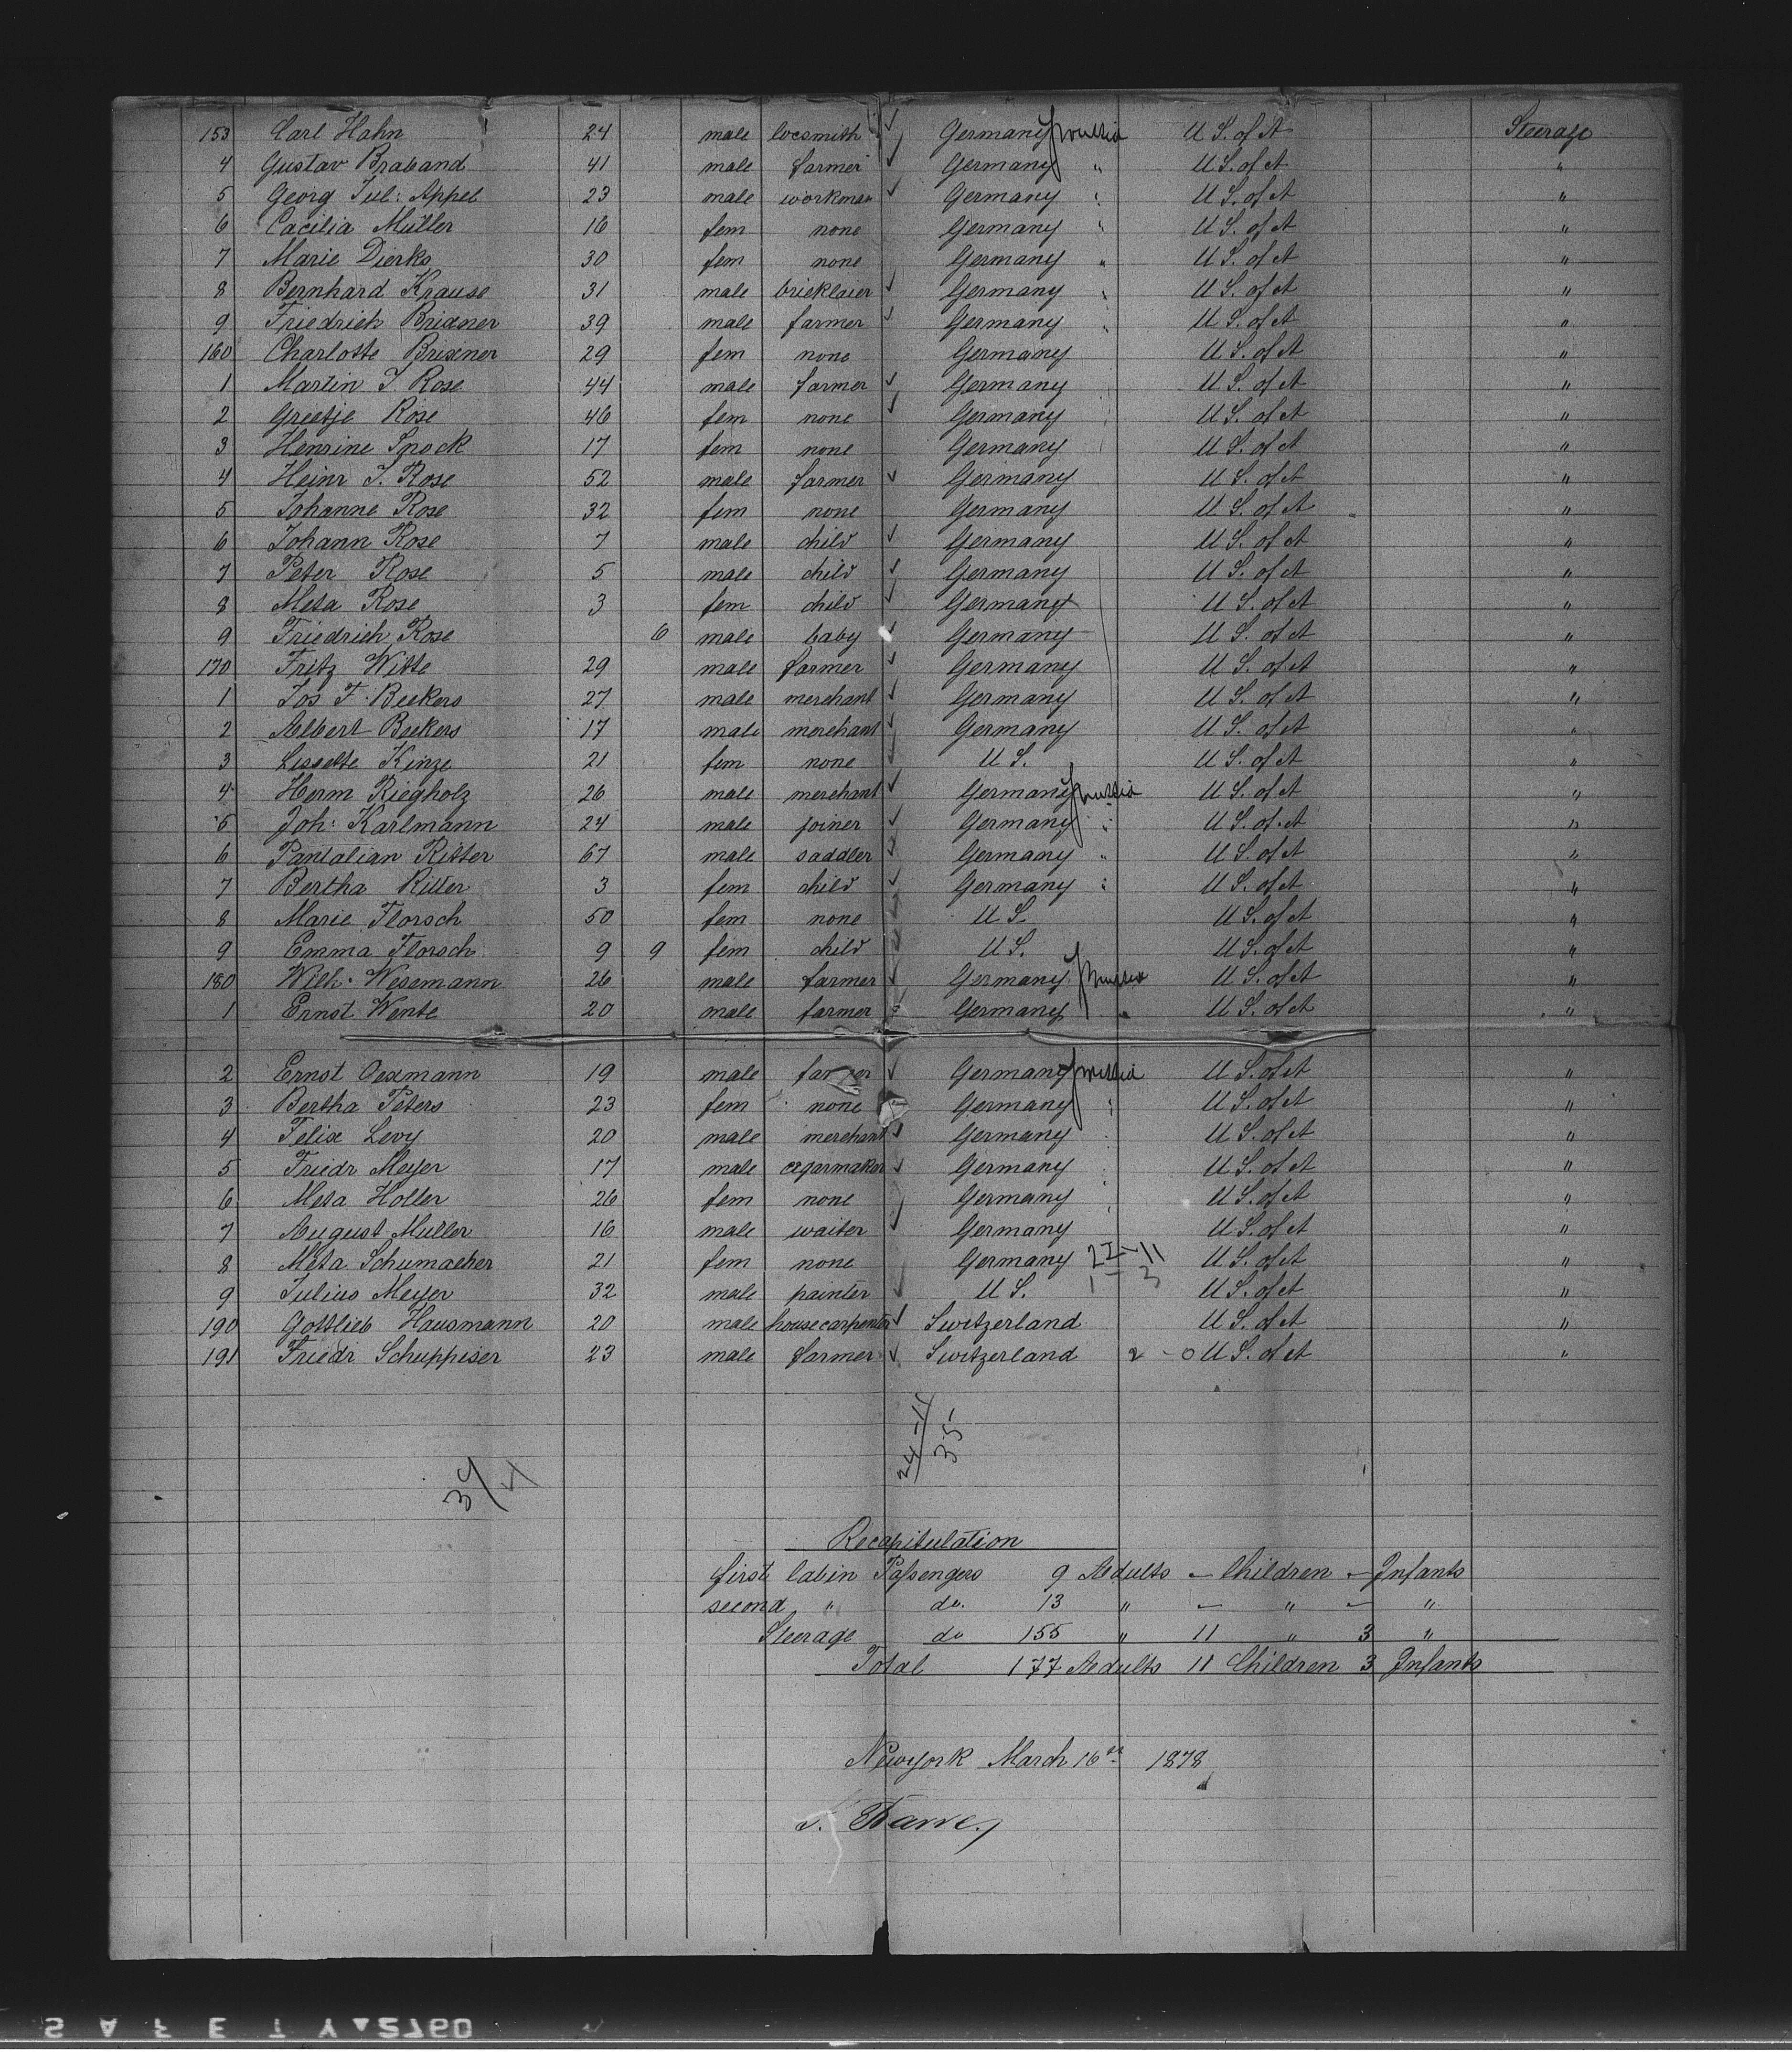 153 Carl Hahn 24 male locsmith Germany Prussia U S. of A Steerage
4 Gustav Braband 41 male farmer Germany " U S. of A "
5 Georg Jul: Appel 23 male workman Germany " U S. of A "
6 Cäcilia Müller 16 fem none Germany " U S. of A "
7 Marie Dierks 30 fem none Germany " U S. of A "
8 Bernhard Krause 31 male bricklaier Germany " U S. of A "
9 Friedrich Brixner 39 male farmer Germany " U S. of A "
160 Charlotte Brixner 29 fem none Germany U S. of A "
1 Martin J. Rose 44 male farmer Germany U S. of A "
2 Greetje Rose 46 fem none Germany U S. of A "
3 Henrine Spock 17 fem none Germany U S. of A "
4 Heinr J. Rose 52 male farmer Germany U S. of A "
5 Johanne Rose 32 fem none Germany U S. of A "
6 Johann Rose 7 male child Germany U S. of A "
7 Peter Rose 5 male child Germany U S. of A "
8 Meta Rose 3 fem child Germany U S. of A "
9 Friedrich Rose 6 male baby Germany U S. of A "
170 Fritz Witte 29 male farmer Germany U S. of A "
1 Jos F. Beckers 27 male merchant Germany U S. of A "
2 Albert Beckers 17 male merchant Germany U S. of A "
3 Lissette Kinze 21 fem none U S. U S. of A "
4 Herm Riegholz 26 male merchant Germany Prussia U S. of A "
5 Joh: Karlmann 24 male joiner Germany " U S. of A "
6 Pantalian Ritter 67 male saddler Germany " U S. of A "
7 Bertha Ritter 3 fem child Germany " U S. of A "
8 Marie Florsch 50 fem none U S. U S. of A "
9 Emma Florsch 9 9 fem child U S. U S. of A "
180 Wilh: Wesemann 26 male farmer Germany Prussia U S. of A "
1 Ernst Wente 20 male farmer Germany " U S. of A "
2 Ernst Oexmann 19 male farmer Germany Prussia U S. of A "
3 Bertha Peters 23 fem none Germany " U S. of A "
4 Felix Levy 20 male merchant Germany U S. of A "
5 Friedr Meyer 17 male cigarmaker Germany U S. of A "
6 Meta Holler 26 fem none Germany U S. of A "
7 August Muller 16 male waiter Germany U S. of A "
8 Meta Schumacher 21 fem none Germany U S. of A "
9 Julius Meyer 32 male painter U S. 1 - 3 U S. of A "
190 Gottlieb Hausmann 20 male housecarpenter Switzerland U S. of A "
191 Friedr Schuppiser 23 male farmer Switzerland 2 - 0 U S. of A "
24 - 11
35
Recapitulation
first Cabin Passengers 9 Adults - Children - Infants
second " do. 13 " - " - "
Steerage do 155 " 11 " 3 "
Total 177 Adults 11 Children 3 Infants
Newyork March 16th 1878
SAFETY 2760